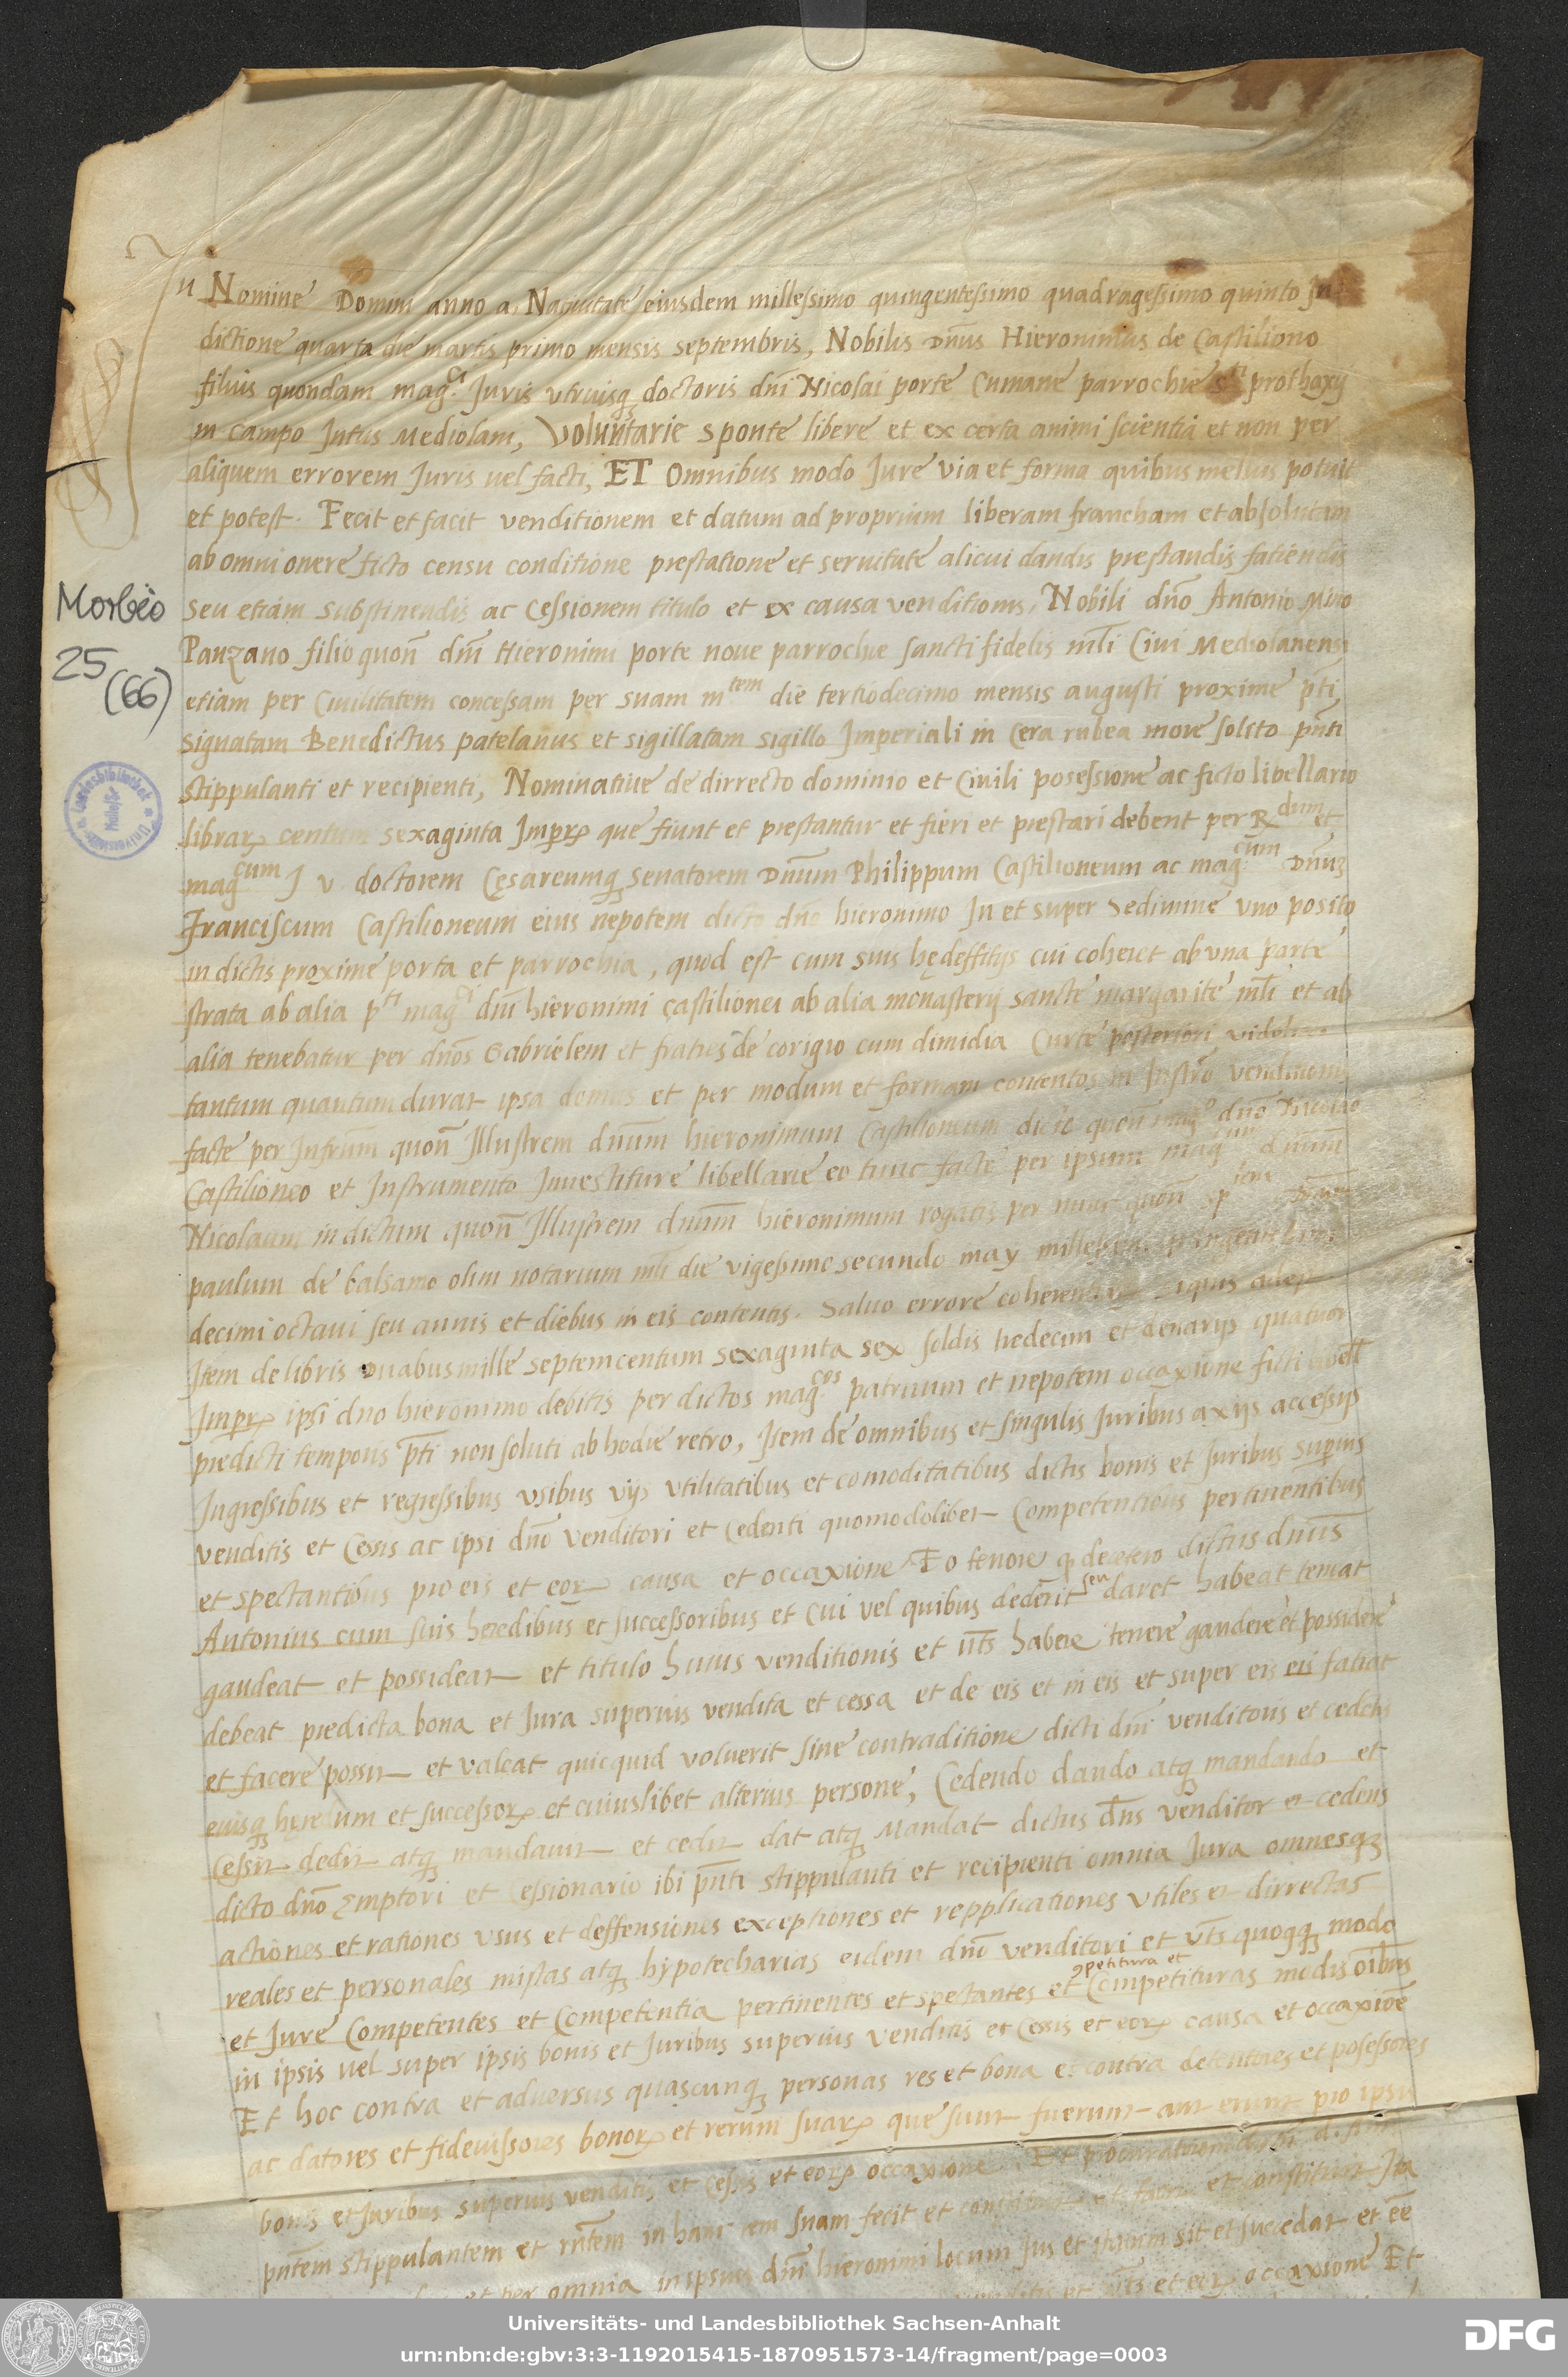 In Nomine Domini anno a Natiuitate eiusdem millessimo quingentessimo quadragessimo quinto In
dictione quarta die martis primo mensis septembris, Nobilis Dn̄us Hieronimus de Castiliono
filius quondam mag.ci Juris vtriusq; doctoris dn̄i Nicolai porte Cumane parrochie s.ti prothaxij
in campo Intus Mediolani, Voluntarie sponte libere et ex certa animi scientia et non per
aliquem errorem Juris vel facti, ET Omnibus modo Jure via et forma quibus melius potuit
et potest. Fecit et facit venditionem et datum ad proprium liberam francham et absolutam
ab omni onere ficto censu conditione prestatione et seruitute alicui dandis prestandis fatiendis
Morbio
seu etiam substinendis ac Cessionem titulo et ex causa venditionis, Nobili dn̄o Antonio Mino
25
(66)
Panzano filio quon̄ dn̄i Hieronimi porte noue parrochie sancti fidelis ml̄i Ciui Mediolanensi
etiam per Ciuilitatem concessam per suam m.tem die tertiodecimo mensis augusti proxime p̄ti
signatam Benedictus patelanus et sigillatam sigillo Imperiali in Cera rubea more solito p̄nti
stippulanti et recipienti, Nominatiue de dirrecto dominio et Ciuili posessione ac ficto libellario
librarꝝ centum sexaginta Imprꝝ que fiunt et prestantur et fieri et prestari debent per R.dum et
mag.cum J v doctorem Cęsareumq; senatorem Dn̄um Philippum Castilioneum ac mag.cum Dnūz
Franciscum Castilioneum eius nepotem dicto dn̄o hieronimo In et super Sedimine vno posito
in dictis proxime porta et parrochia, quod est cum suis hędeffitijs cui coheret ab vna parte
strata ab alia p.ti mag.ci dn̄i hieronimi castilionei ab alia monasterij sancte margarite ml̄i et ab
alia tenebatur per dn̄os Gabrielem et fratres de corigio cum dimidia Curte posteriori
tantum quantum durat ipsa domus et per modum et formam contentos in Instrō venditionis
facte per Infrūm quon̄ Illustrem dnūm hieronimum Castilioneum dicto quon̄ mag.co dn̄o Nicolao
Castilioneo et Instrumento Inuestiture libellarie eo tunc facte per ipsum mag.cum dnūm
Nicolaum in dictum quon̄ Illustrem dnūm hieronimum rogatis per nunc quon̄
paulum de balsamo olim notarium ml̄i die vigessimo secundo may
decimi octaui seu annis et diebus in eis contentis. Saluo errore
Item de libris Duabusmille septemcentum sexaginta sex soldis tredecim et denarijs quatuor
Imprꝝ ipsi dn̄o hieronimo debitis per dictos mag.cos patruum et nepotem occaxione ficti libell
predicti temporis p̄ti non soluti ab hodie retro, Item de omnibus et singulis Juribus axijs accessijs
Ingressibus et regressibus vsibus vijs vtilitatibus et comoditatibus dictis bonis et Juribus superius
venditis et Cessis ac ipsi dn̄o venditori et Cedenti quomodolibet Competentibus pertinentibus
et spectantibus pro eis et eorꝝ causa et occaxione. Eo tenore q̄ decetero dictus dnūs
Antonius cum suis heredibus et successoribus et Cui vel quibus dederit seu daret habeat teneat
gaudeat et possideat et titulo huius venditionis et ūts habere tenere gaudere et possidere
debeat predicta bona et Jura superius vendita et cessa et de eis et in eis et super eis eis fatiat
et facere possit et valeat quicquid voluerit sine contraditione dicti dn̄i venditoris et cedetis
eiusq; heredum et successorꝝ et cuiuslibet alterius persone, Cedendo dando atq; mandando et
Cessit dedit atq; mandauit et cedit dat atq; Mandat dictus dn̄s venditor et cedens
dicto dn̄o Emptori et Cessionario ibi p̄nti stippulanti et recipienti omnia Jura omnesq;
actiones et rationes vsus et deffensiones exceptiones et repplicationes vtiles et dirrectas
reales et personales mistas atq; hypotecharias eidem dn̄o venditori et ūts quoqq; modo
et Jure Competentes et Competentia pertinentes et spectantes et ꝯpetitura et Competituras modis oībus
in ipsis vel super ipsis bonis et Juribus superius venditis et Cessis et eorꝝ causa et occaxioē
Et hoc contra et aduersus quascunq; personas res et bona et contra detentores et posessores
ac datores et fideiussores bonorꝝ et rerum suarꝝ que sunt fuerunt aut erunt pro ipsis
bonis et Juribus superius venditis et Cessis et eorꝝ occaxione. Et procuratorem
pn̄tem stippulantem et rn̄tem in hanc rem suam fecit et constituit et facit et constituit Ita
et per omnia in ipsius dn̄i hieronimi locum Jus et statum sit et succedat et eē
et ūts et eorꝝ occaxione Et
Universitäts- und Landesbibliothek Sachsen-Anhalt
urn:nbn:de:gbv:3:3-1192015415-1870951573-14/fragment/page=0003
DFG